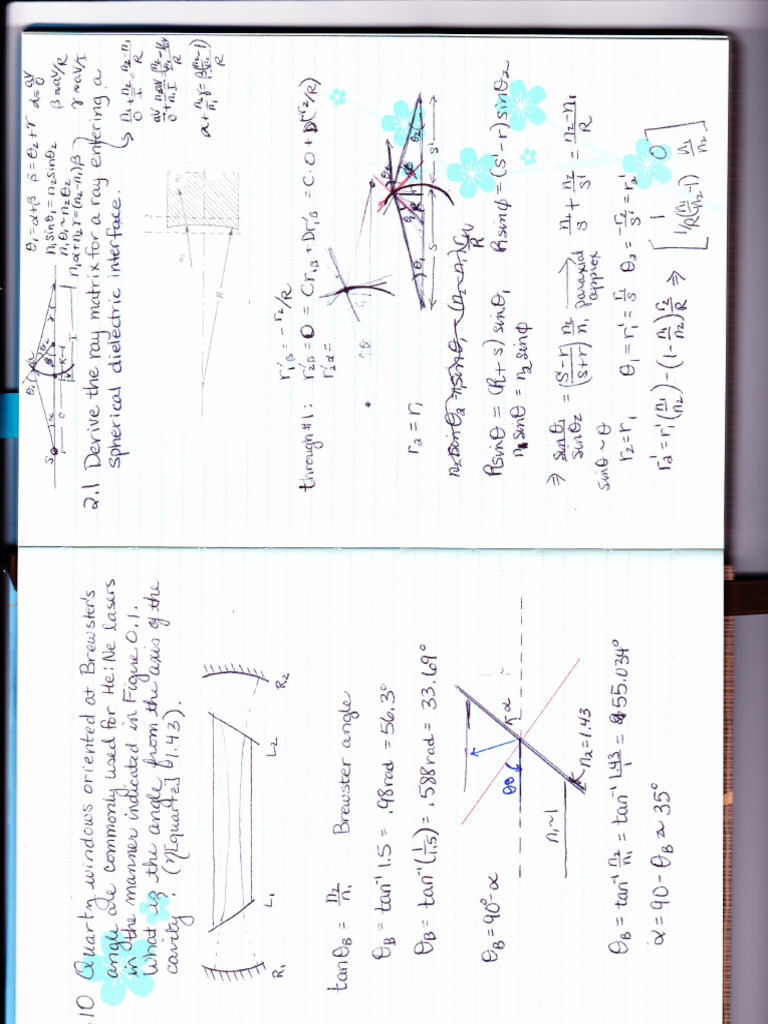 .10 Quartz windows oriented at Brewster's
angle are commonly used for He:Ne lasers
in the manner indicated in Figure 0.1.
What is the angle from the axis of the
cavity? (η[quartz] 1.43).
R₁ L₁ L₂ R₂
tanθ_B = n₂/n₁ Brewster angle
θ_B = tan⁻¹ 1.5 = .98rad = 56.3°
θ_B = tan⁻¹(1/1.5) = .588rad = 33.69°
θ_B = 90° - α
θB
α
n₁~1
n₂=1.43
θ_B = tan⁻¹ n₂/n₁ = tan⁻¹ 1.43/1 = 55.034°
α = 90 - θ_B ≈ 35°
θ₁ = α+β β = θ₂+γ
n₁sinθ₁ = n₂sinθ₂
n₁θ₁ ~ n₂θ₂
n₁α + n₂γ = (n₂-n₁)β
2.1 Derive the ray matrix for a ray entering a
spherical dielectric interface.
through #1:
r'₁β = -r₂/R
r'₂β = 0 = Cr₁β + Dr'₁β = C·0 + D(-r₂/R)
r'₂α =
r₂ = r₁
Rsinθ = (R+s) sinθ₁ Rsinφ = (s'-r) sinθ₂
n₁sinθ = n₂ sinφ
⇒ sinθ₁/sinθ₂ = (s'-r/s+r) n₂/n₁ paraxial approx n₁/s + n₂/s' = n₂-n₁/R
sinθ ~ θ
r₂ = r₁ θ₁ = r₁' = r₁/s θ₂ = -r₂/s' = r₂'
r₂' = r₁'(n₁/n₂) - (1 - n₁/n₂) r₂/R ⇒ [1 0
1/R(n₁/n₂ -1) n₁/n₂]